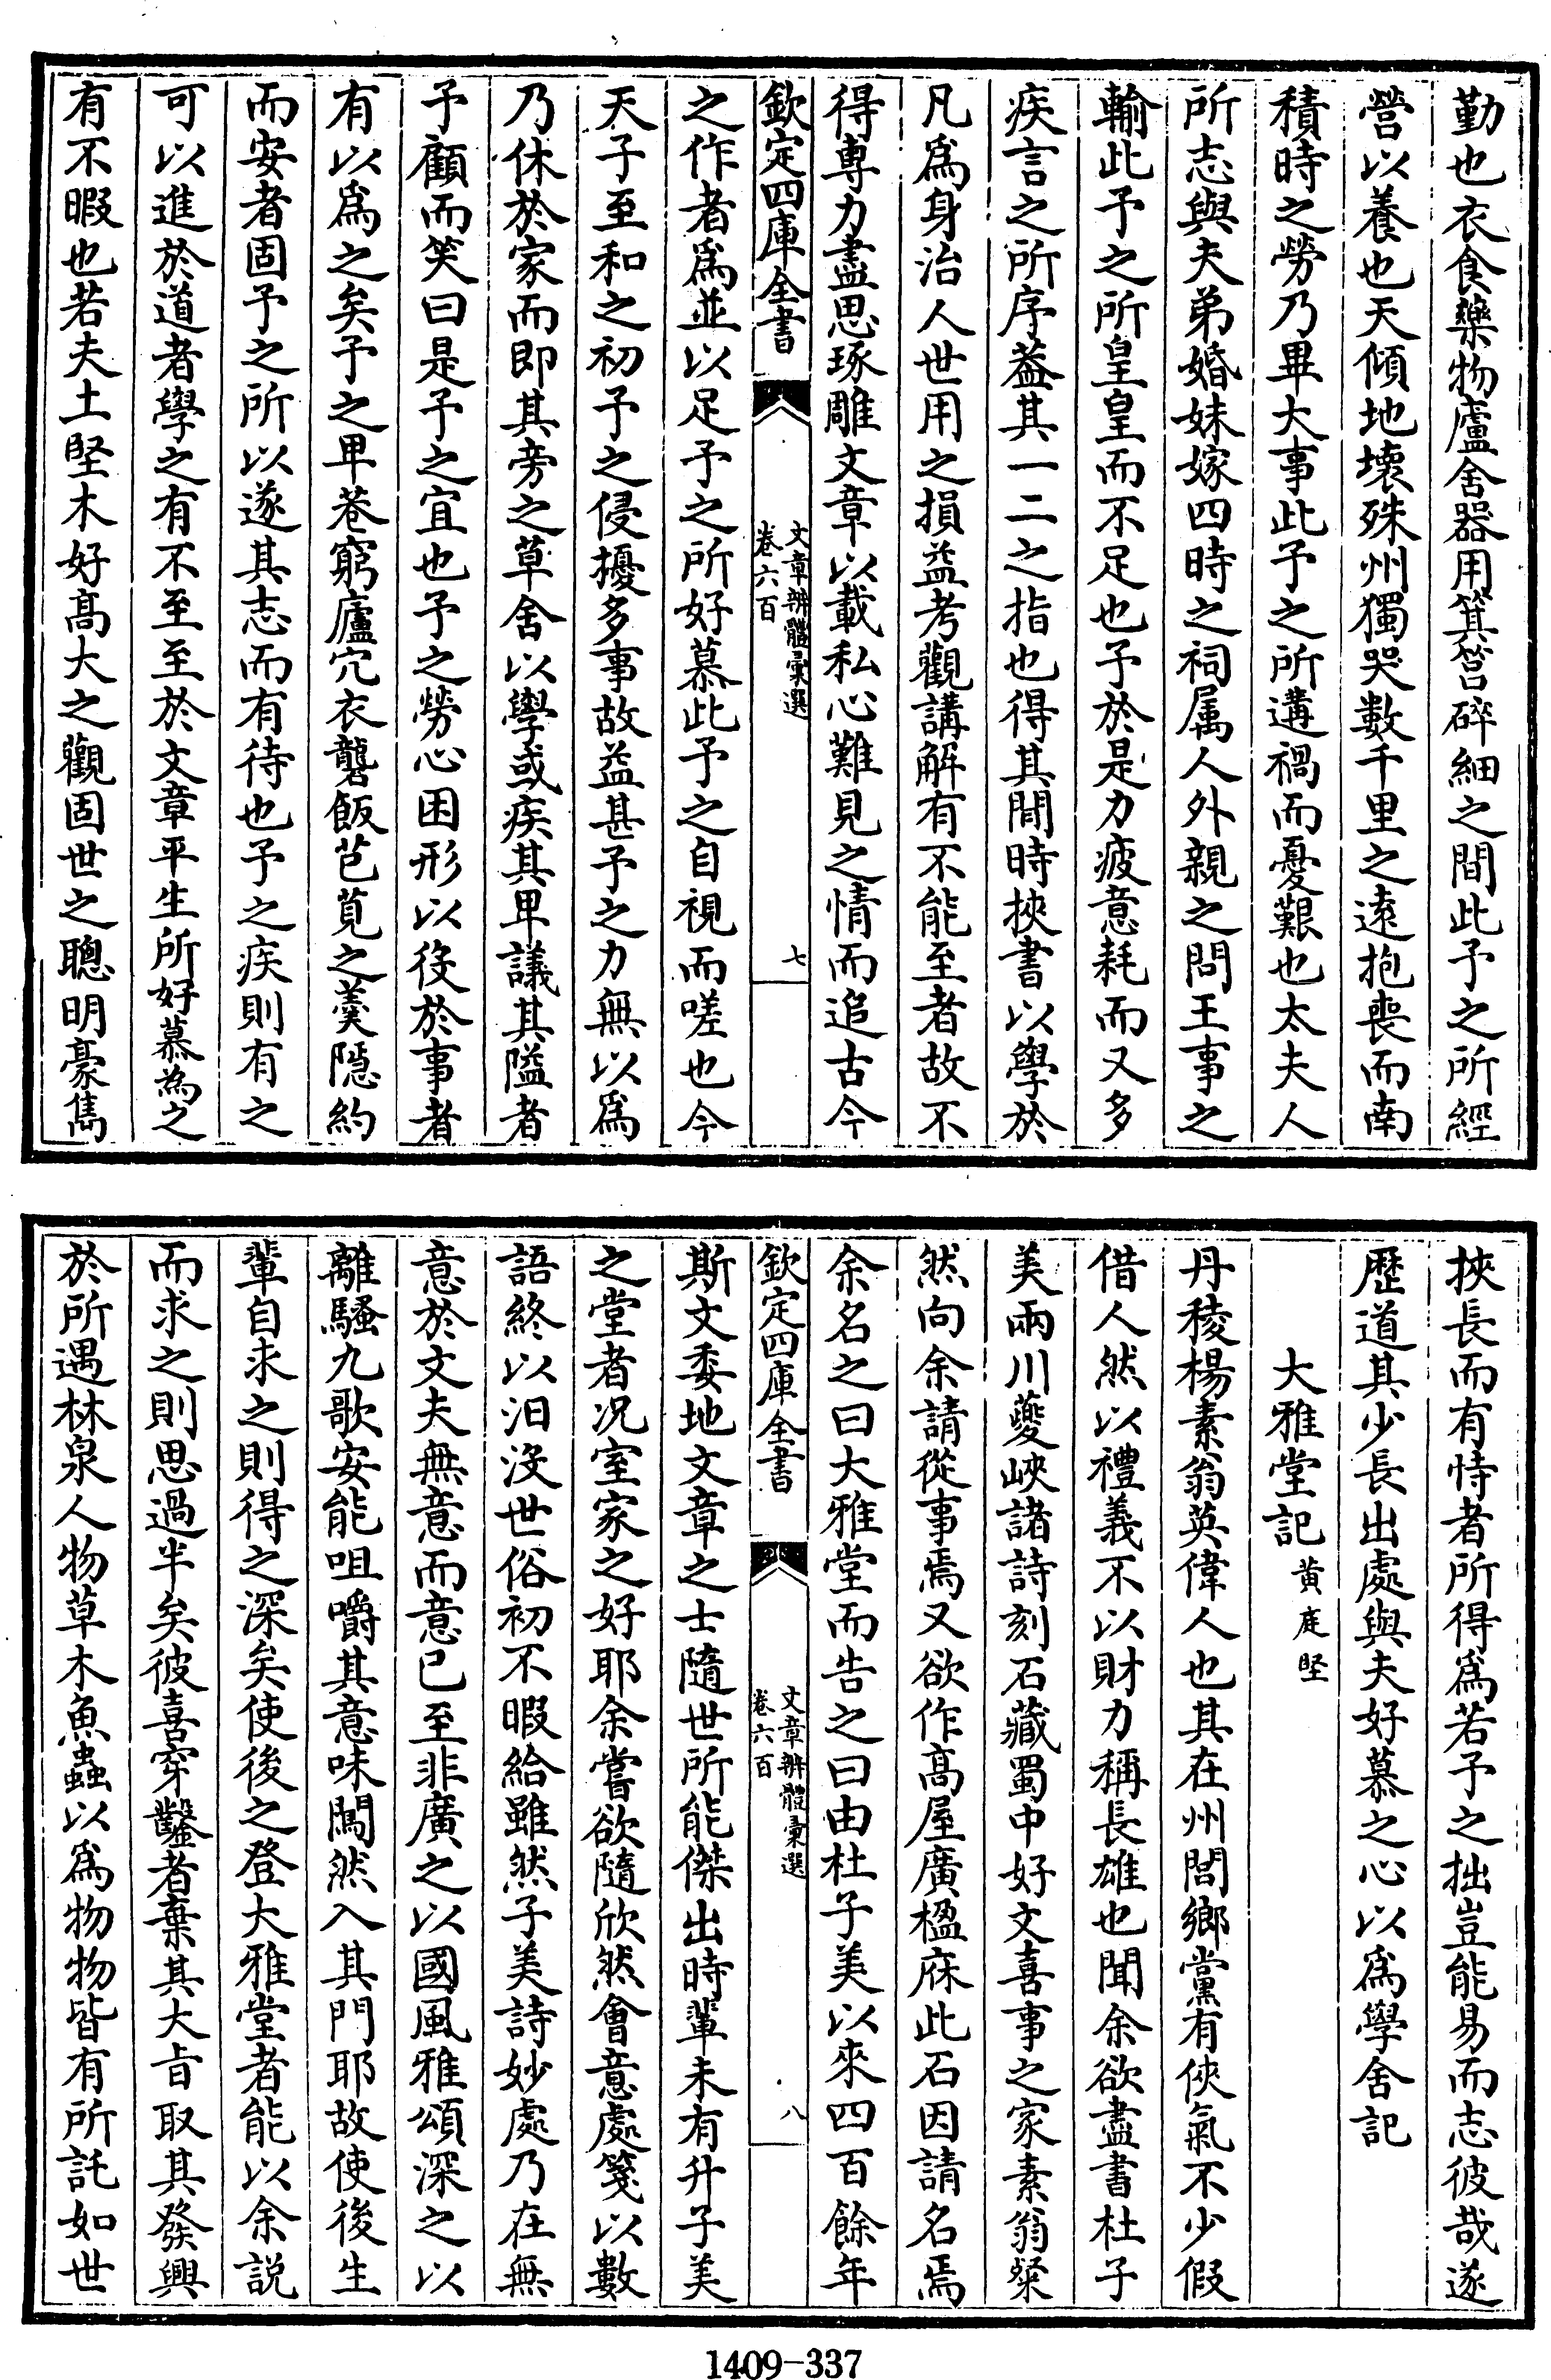 勤也衣食藥物廬舍器用箕筥碎細之間此予之所經
營以養也天傾地壊殊州獨哭數千里之逺抱喪而南
積時之勞乃畢大事此予之所遘禍而憂艱也太夫人
所志與夫弟婚妹嫁四時之祠属人外親之問王事之
輸此予之所皇皇而不足也予於是力疲意耗而又多
疾言之所序葢其一二之指也得其閒時挾書以學於
凡爲身治人世用之損益考觀講解有不能至者故不
得專力盡思琢雕文章以載私心難見之情而追古今
欽定四庫全書
文章辨體彚選
卷六百
七
之作者爲並以足予之所好慕此予之自視而嗟也今
天子至和之初予之侵擾多事故益甚予之力無以爲
乃休於家而即其旁之草舍以學或疾其卑議其隘者
予顧而笑曰是予之宜也予之勞心困形以役於事者
有以爲之矣予之卑巷窮廬冗衣礱飯芑莧之羮隱約
而安者固予之所以遂其志而有待也予之疾則有之
可以進於道者學之有不至至於文章平生所好慕為之
有不暇也若夫土堅木好高大之觀固世之聰明豪雋
挾長而有恃者所得爲若予之拙豈能易而志彼哉遂
歴道其少長出處與夫好慕之心以爲學舍記
大雅堂記黄庭堅
丹稜楊素翁英偉人也其在州閭鄉黨有俠氣不少假
借人然以禮義不以財力稱長雄也聞余欲盡書杜子
美兩川夔峽諸詩刻石藏蜀中好文喜事之家素翁粲
然向余請從事焉又欲作高屋廣楹庥此石因請名焉
余名之曰大雅堂而告之曰由杜子美以來四百餘年
欽定四庫全書
文章辨體彚選
卷六百
八
斯文委地文章之士隨世所能傑出時輩未有升子美
之堂者况室家之好耶余嘗欲隨欣然會意處箋以數
語終以汨没世俗初不暇給雖然子美詩妙處乃在無
意於文夫無意而意已至非廣之以國風雅頌深之以
離騷九歌安能咀嚼其意味闖然入其門耶故使後生
輩自求之則得之深矣使後之登大雅堂者能以余説
而求之則思過半矣彼喜穿鑿者棄其大旨取其發興
於所遇林泉人物草木魚蟲以爲物物皆有所託如世
1409-337